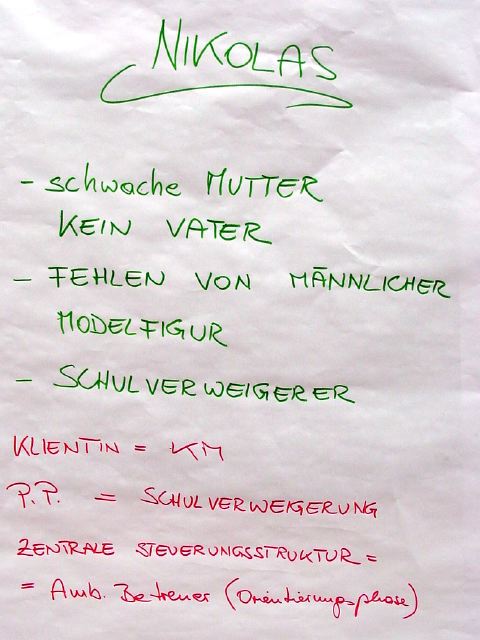 NIKOLAS
- schwache MUTTER
KEIN VATER
- FEHLEN VON MÄNNLICHER
MODELFIGUR
- SCHULVERWEIGERER
KLIENTIN = KM
P.P. = SCHULVERWEIGERUNG
ZENTRALE STEUERUNGSSTRUKTUR =
= Amb. Betreuer (Orientierungsphase)